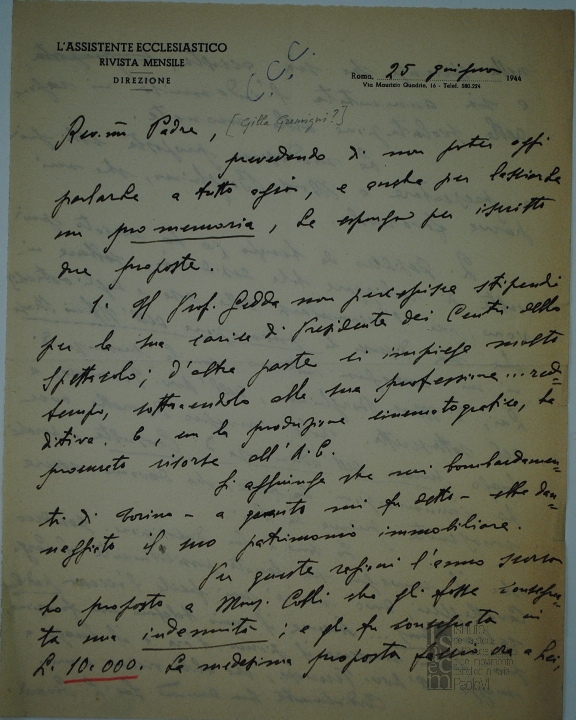 L'ASSISTENTE ECCLESIASTICO
RIVISTA MENSILE
DIREZIONE
C.C.C.
Roma, 25 giugno 1944
Via Maurizio Quadrio, 16 - Telef. 580.234
Rev.mo Padre, [Gilla Gremigni?]
prevedendo di non poter oggi
parlarLe a tutto agio, e anche per lasciarLe
un pro memoria, Le espongo per iscritto
due proposte.
1. Il Prof. Gedda non percepisce stipendi
per la sua carica di Presidente dei Centri dello
Spettacolo; d'altra parte ci impiega molto
tempo, sottraendolo alla sua professione... red-
ditiva. E, con la produzione cinematografica, ha
procurato risorse all'A.C.
Si aggiunga che nei bombardamen-
ti di Torino - a quanto mi fu detto - ebbe dan-
neggiato il suo patrimonio immobiliare.
Per queste ragioni l'anno scorso
ho proposto a Mons. Colli che gli fosse consegna-
ta una indennità; e gli fu consegnata in
L. 10.000. La medesima proposta faccio ora a Lei,